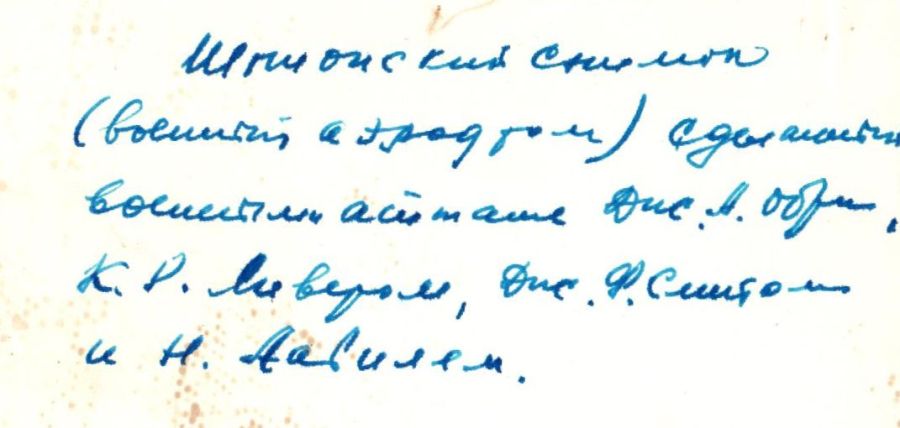 Шпионский снимок
(военный аэродром) сделанный
военными атташе Дж. А. Обри,
К. Р. Ливером, Дж. Ф. Смитом
и Н.